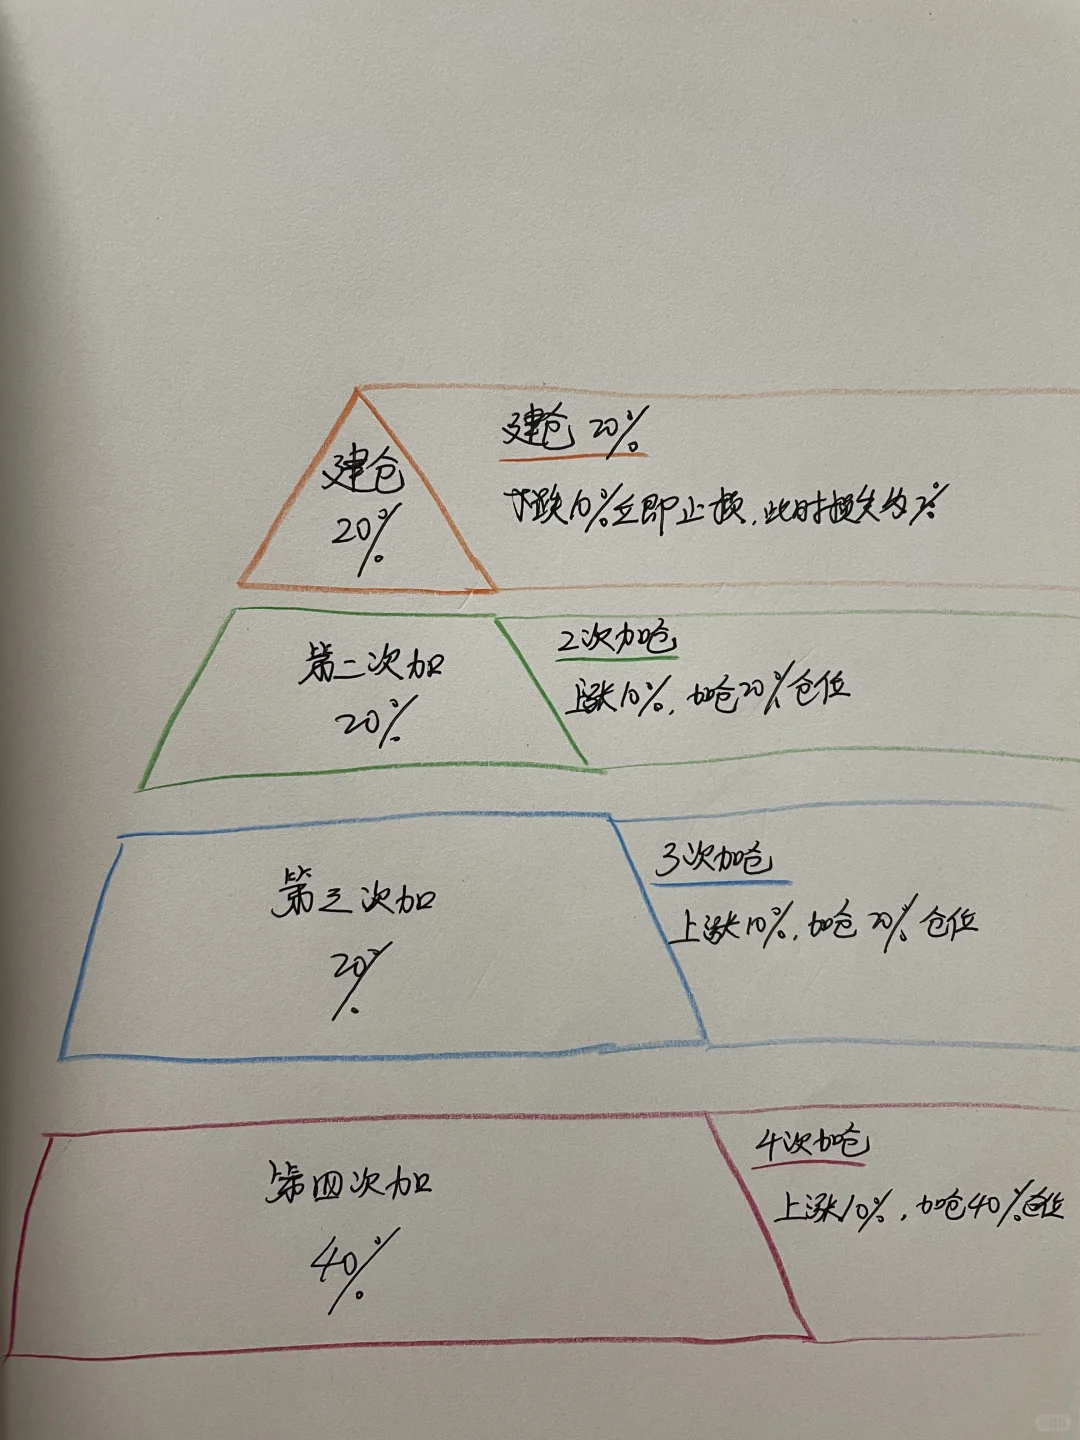 建仓
20%
建仓 20%
下跌10%立即止损,此时损失约2%
第二次加
20%
2次加仓
上涨10%,加仓20%仓位
第三次加
20%
3次加仓
上涨10%,加仓20%仓位
第四次加
40%
4次加仓
上涨10%,加仓40%仓位